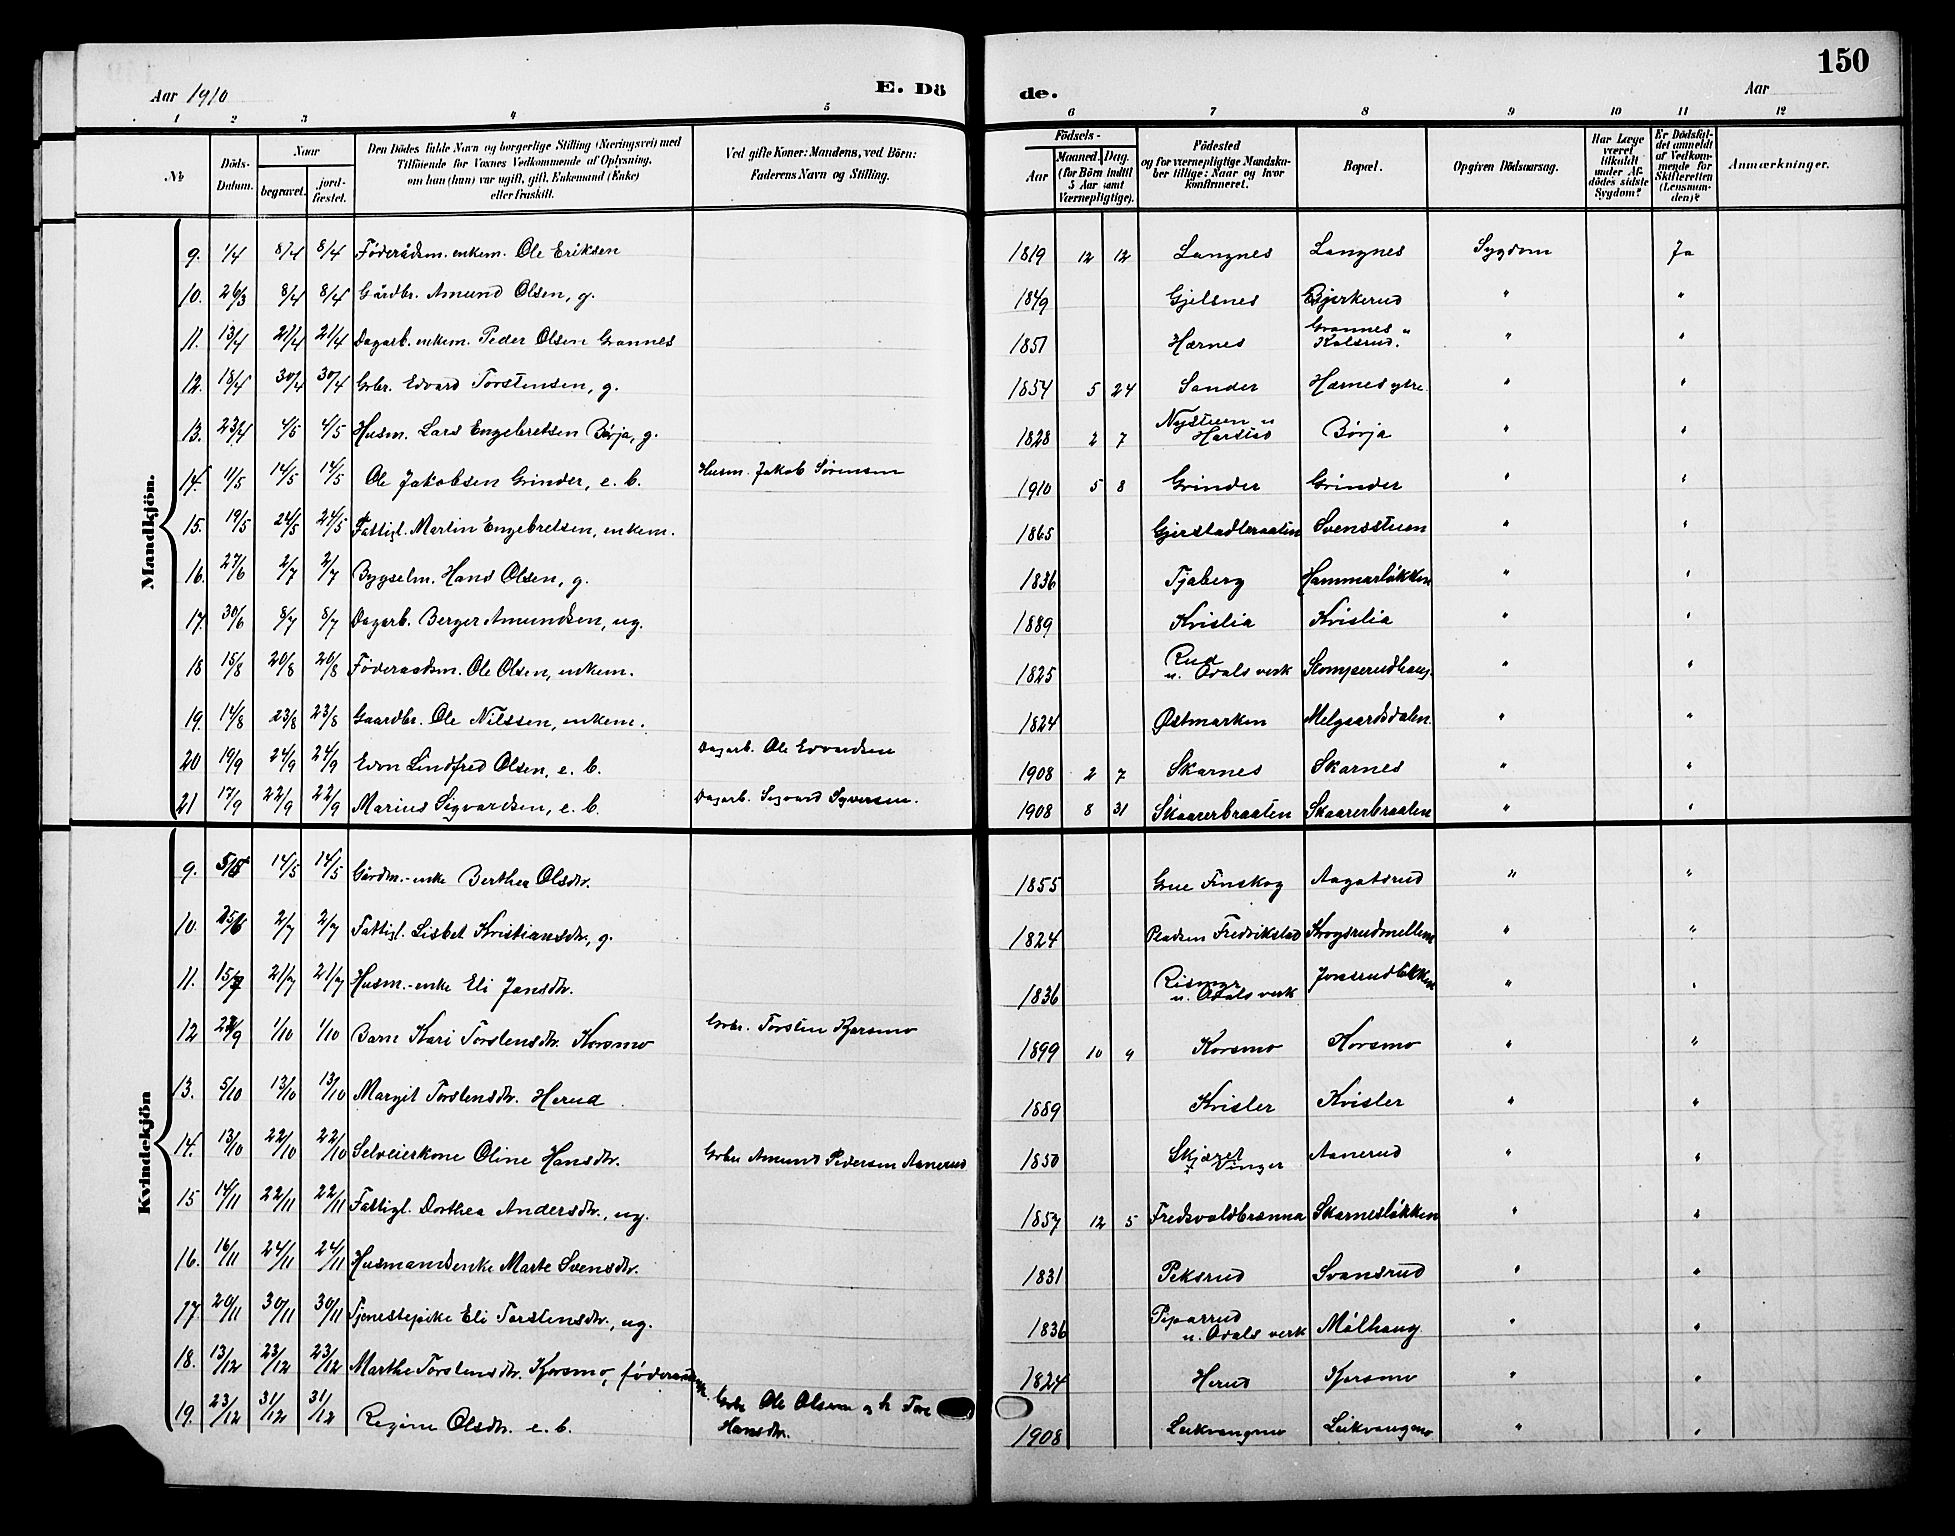 150
Aar 1910
E. Dö
de.
Aar
1 2 3 4 5 6 7 8 9 10 11 12
No
Döds-Datum.
Naar
begravet.
jord-fæstet.
Den Dödes fulde Navn og borgerlige Stilling (Næringsvei) med
Tilföiende for Voxnes Vedkommende af Oplysning,
om han (hun) var ugift, gift, Enkemand (Enke)
eller fraskilt.
Ved gifte Koner: Mandens, ved Börn:
Faderens Navn og Stilling.
Födsels-
Aar
Maaned. Dag.
(for Börn indtil
5 Aar samt
Værnepligtige).
Födested
og for værnepligtige Mandska-
ber tillige: Naar og hvor
konfirmeret.
Bopæl.
Opgiven Dödsaarsag.
Har Læge
været
tilkaldt
under Af-
dödes sidste
Sygdom?
Er Dödsfal-
det anmeldt
af Vedkom-
mende for
Skifteretten
(Lensman-
den)?
Anmærkninger.
Mandkjön.
9. 1/4 8/4 8/4 Føderådsm. enkem. Ole Eriksen 1819 12 12 Langnes Langnes Sygdom Ja
10. 26/3 8/4 8/4 Gårdbr. Amund Olsen, g. 1849 Gjelsnes Bjerkerud " "
11. 13/4 21/4 21/4 Dagarb. enkem. Peder Olsen Grannes 1851 Hærnes Grannes u Kolsrud. " "
12. 18/4 30/4 30/4 Gbr. Edvard Torstensen, g. 1854 5 24 Sander Hærnes ytre " "
13. 23/4 4/5 4/5 Husm. Lars Engebretsen Børja, g. 1828 2 7 Nystuen u Harstad Børja " "
14. 11/5 14/5 14/5 Ole Jakobsen Grinder, e. b. Husm. Jakob Sørensen 1910 5 8 Grinder Grinder " "
15. 19/5 24/5 24/5 Fattigl. Martin Engebretsen, enkem. 1865 Gjerstadbraaten Svensstuen " "
16. 27/6 2/7 2/7 Bygselm. Hans Olsen, g. 1836 Tjaberg Hammerløkken " "
17. 30/6 8/7 8/7 Dagarb. Berger Amundsen, ug. 1889 Kvislia Kvislia " "
18 15/8 20/8 20/8 Føderaadsm. Ole Olsen, enkem. 1825 Rud u. Odals verk Stomperudhaug. " "
19. 14/8 23/8 23/8 Gaardbr. Ole Nilssen, enkem. 1824 Østmarken Melgaardsdalen. " "
20 19/9 24/9 24/9 Evon Lindfred Olsen, e. b. Dagarb. Ole Edvardsen 1908 2 7 Skarnes Skarnes " "
21 17/9 22/9 22/9 Marius Sigvardsen, e. b. Dagarb. Sigvard Syversen. 1908 8 31 Skaarerbraaten Skaarerbraaten " "
Kvindekjön
9. 14/5 14/5 Gårdm.-enke Berthea Olsdtr. 1855 Grue Finskog Aagotsrud " "
10. 25/6 2/7 2/7 Fattigl. Lisbet Kristiansdtr., g. 1824 Pladsen Fredrikstad Krogsrudmellem " "
11. 15/7 21/7 21/7 Husm.-enke Eli Jansdtr. 1836 Rismyr u. Odals verk Jonsrudløkken " "
12 1/10 1/10 Barn Kari Torstensdtr. Korsmo Gbr. Torsten Korsmo 1899 10 9 Korsmo Korsmo " "
13. 5/10 13/10 13/10 Margit Torstensdtr. Herud 1889 Kvisler Kvisler " "
14. 13/10 22/10 22/10 Selveierkone Oline Hansdtr. Gbr Amund Pedersen Aanerud 1850 Vinger Aanerud " "
15 14/11 22/11 22/11 Fattigl. Dorthea Andersdtr., ug. 1857 12 5 Fredsvoldbrænna Skarnesløkken " "
16. 16/11 24/11 24/11 Husmandsenke Marte Svensdtr. 1831 Peksrud Svansrud " "
17. 20/11 30/11 30/11 Tjenestepike Eli Torstensdtr., ug. 1836 Piparrud u. Odals verk Målhaug " "
18. 13/12 23/12 23/12 Marthe Torstensdtr. Korsmo, 1824 Herud Korsmo " "
19. 23/12 31/12 31/12 Regine Olsdtr. e. b. Gbr Ole Olsen og h. Tore Hansdtr. 1908 Leikvangmo Leikvangmo " "